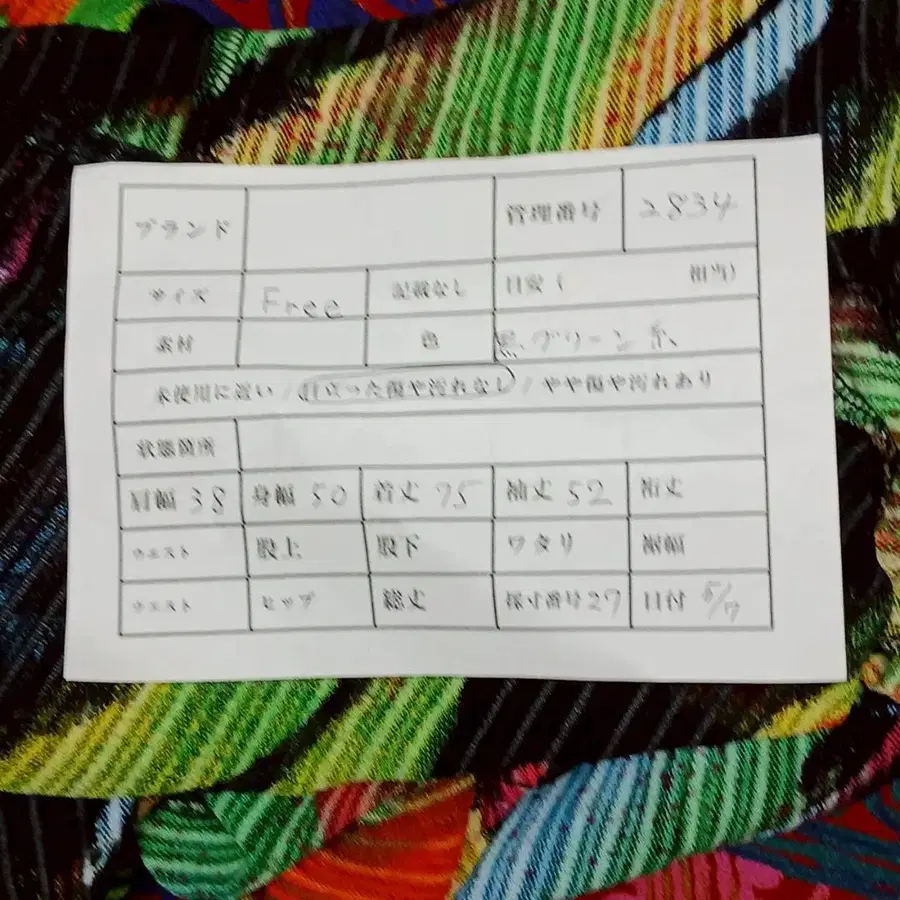 ブランド 管理番号 2834
サイズ Free 記載なし 目安（ 相当）
素材 色 黒、グリーン系
未使用に近い / 目立った傷や汚れなし / やや傷や汚れあり
状態箇所
肩幅 38 身幅 50 着丈 75 袖丈 52 裄丈
ウエスト 股上 股下 ワタリ 裾幅
ウエスト ヒップ 総丈 採寸番号 27 日付 5/7